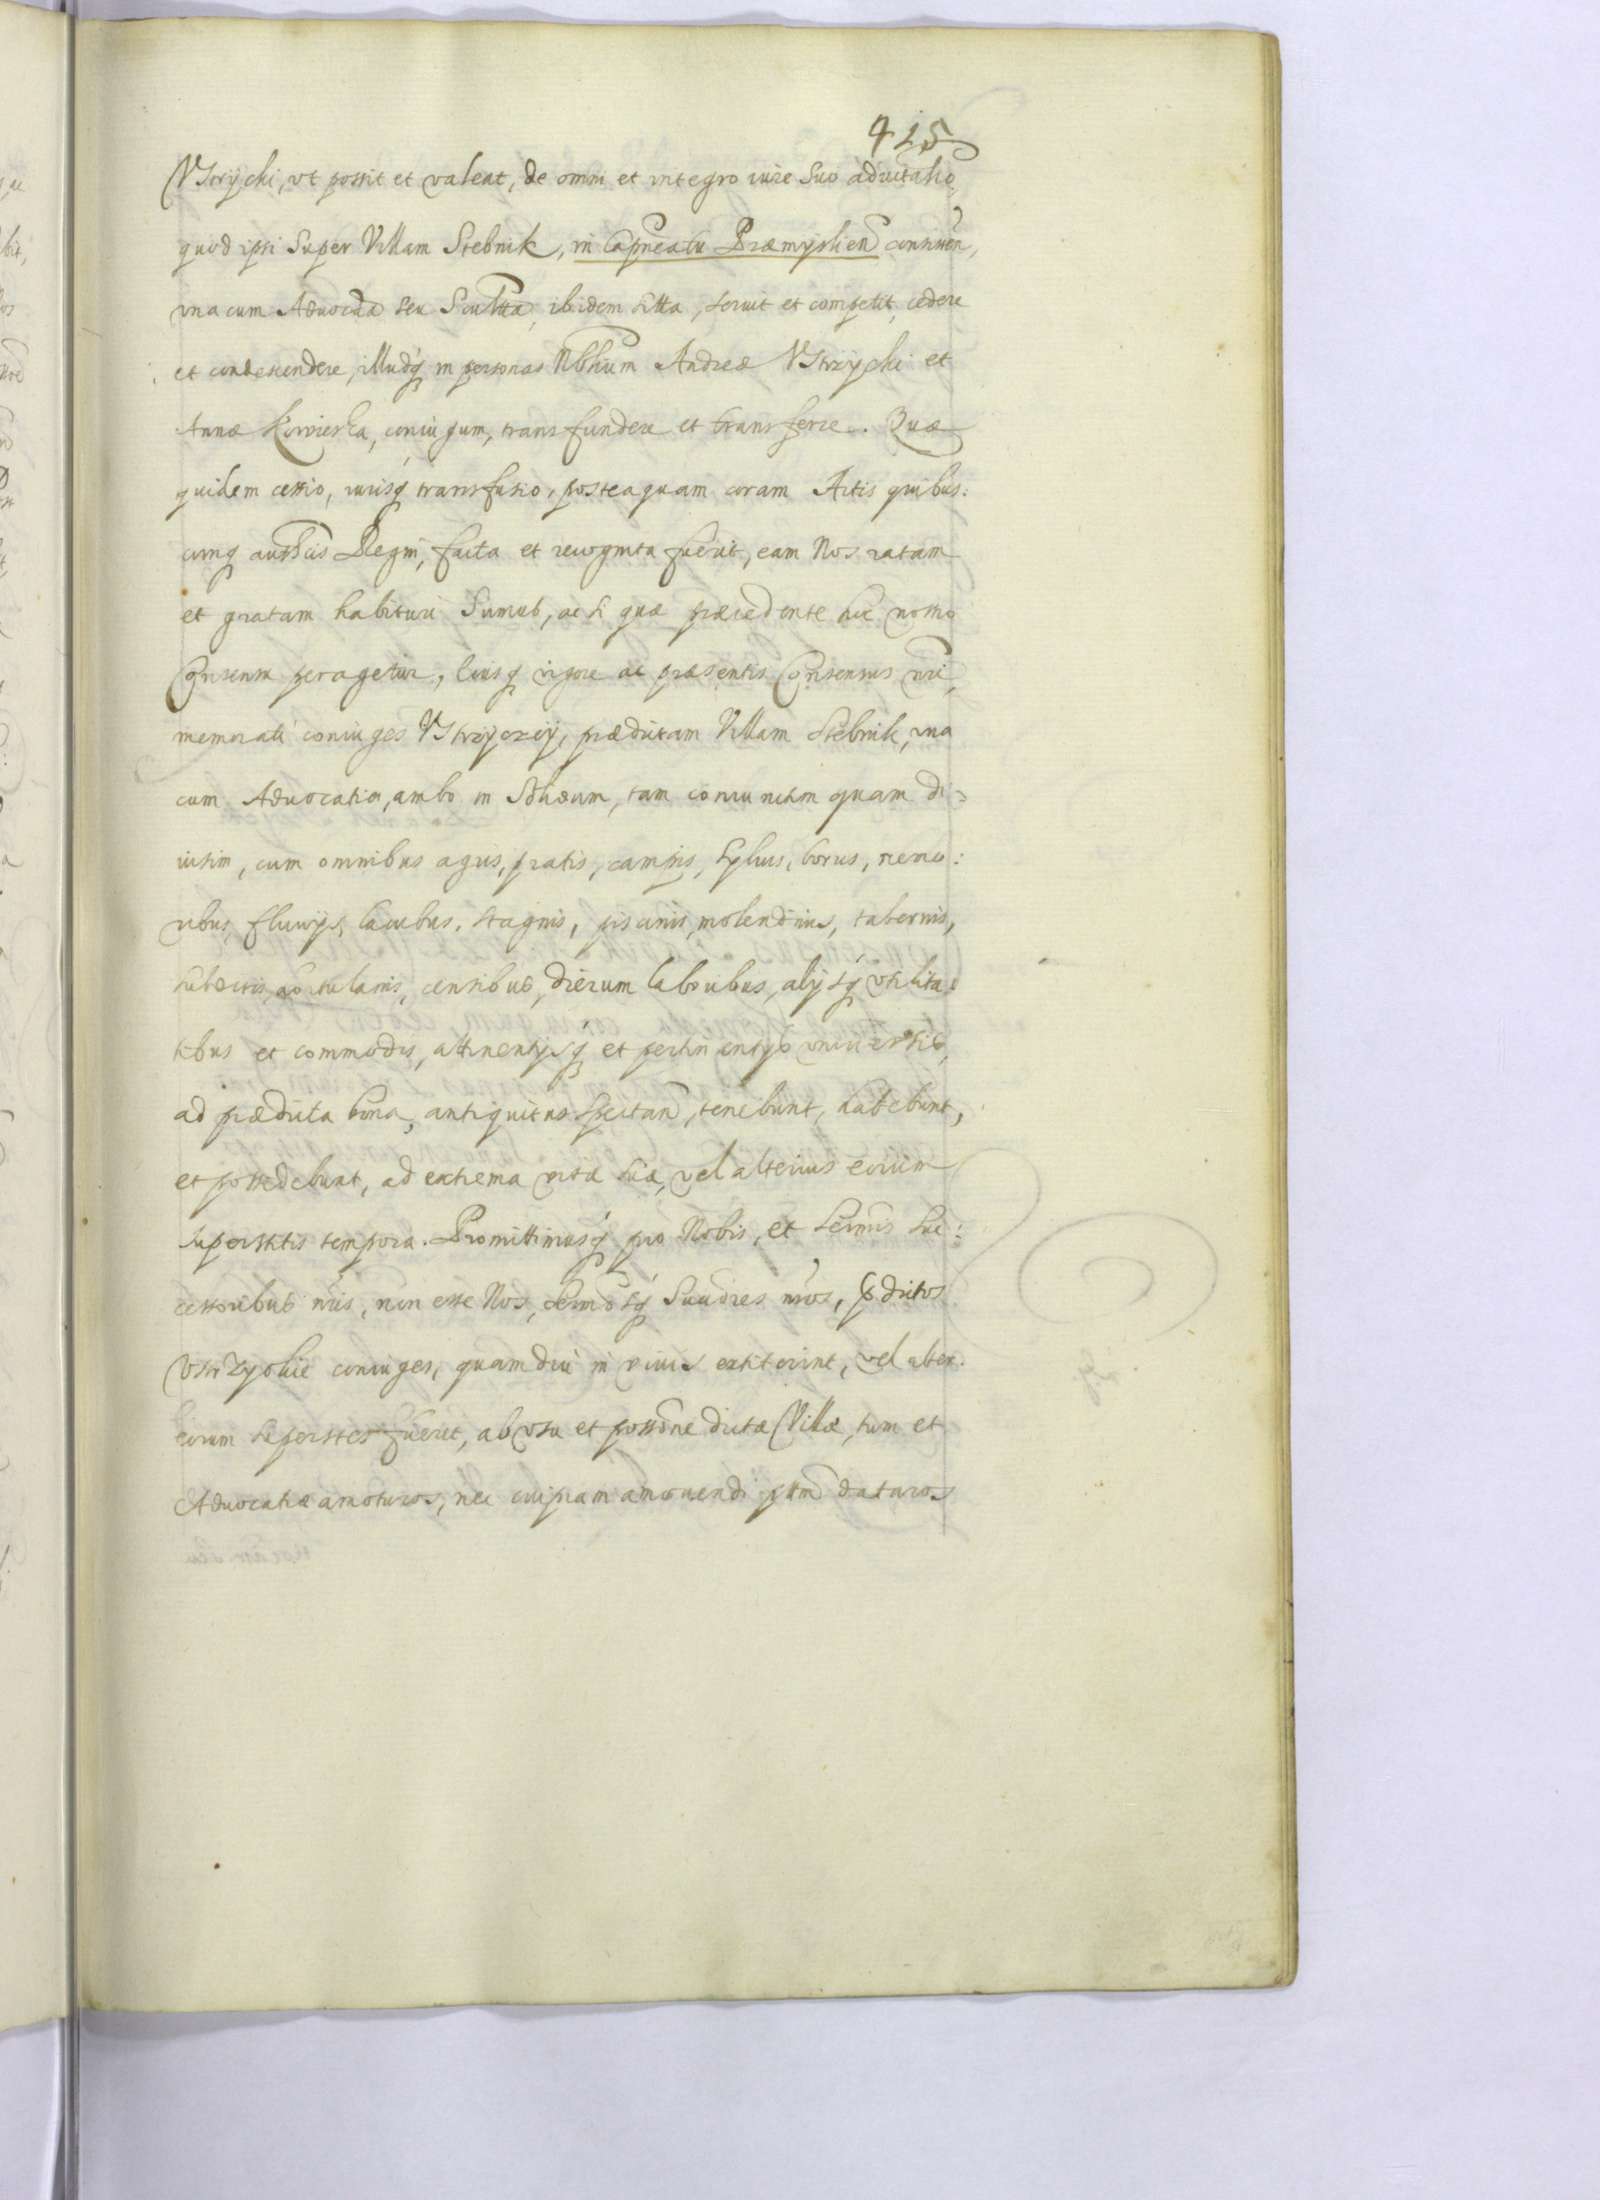 425
Vstrzycki, vt possit et valeat, de omni et integro iure suo aduitalio
quod ipsi super Villam Stebnik, in Capneatu Præmyslien consisten,
vna cum Aduocata seu Scultta, ibidem sitta, seruit et competit, cedere
et condescendere, illudq in personas Nbilium Andreæ Vstrzycki et
Annæ Kowierska, coniugum, transfundere et transferre. Quæ
quidem cessio, iurisq transfusio, posteaquam coram Actis quibus:
cunq authcis Regni, facta et recognita fuerit, eam Nos ratam
et gratam habituri sumus, ac si quæ præcedente hoc nostro
Consensu perageretur, Cuiusq vigore ac præsentis Consensus nri
memorati coniuges Vstrzyccy, prædictam Villam Stebnik, vna
cum Aduocatia, ambo in solidum, tam coniunctim quam di=
uisim, cum omnibus agris, pratis, campis, syluis, borris, nemo:
ribus, fluuijs, lacubus, stagnis, piscinis, molendinis, tabernis,
subditis, hortulanis, censibus, dierum laboribus, alijsq vtilita:
tibus et commodis, attinentijsq et pertinentijs vniuersis,
ad prædicta bona, antiquitus spectan, tenebunt, habebunt,
et possidebunt, ad extrema vitæ suæ, vel alterius eorum
superstitis tempora. Promittimusq pro Nobis, et Sermis Suc:
cessoribus nris, non esse Nos, Sermosq Succores nros, pdictos
Vstrzyckie coniuges, quamdiu in viuis extiterint, vel alter
eorum superstes fuerit, ab vsu et possone dictæ Villæ, tum et
Aduocatiæ amoturos, nec cuipiam amouendi pttem daturos